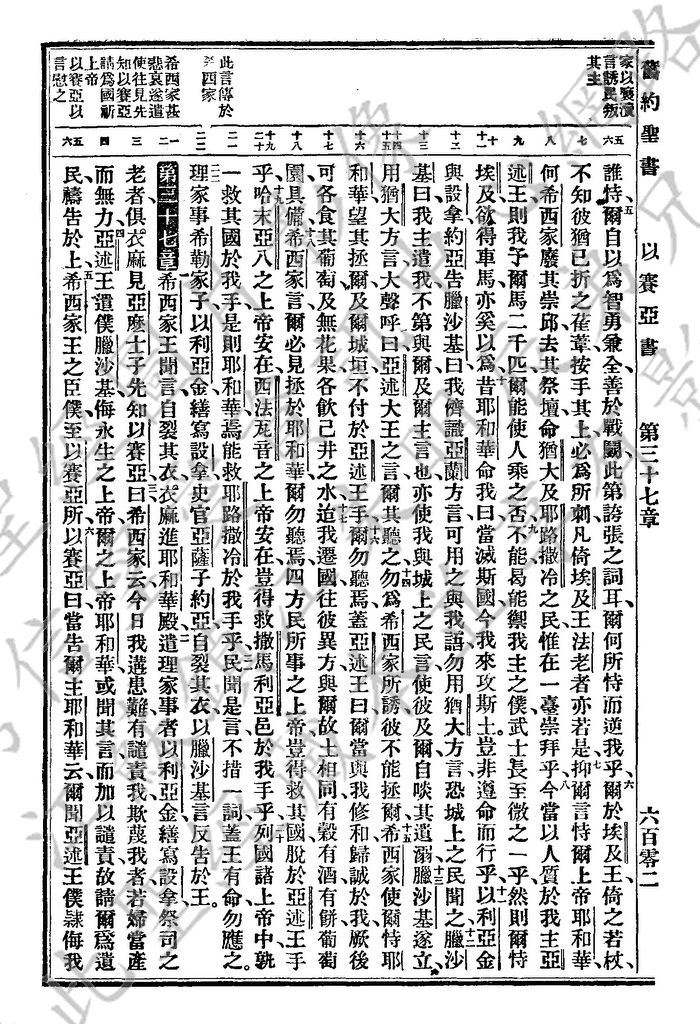 舊約聖書 以賽亞書 第三十七章 六百零二
家以褻瀆
言誘民叛
其主
此言傳於
希西家
希西家甚
悲哀遂遣
使往見先
知以賽亞
請爲國祈
上帝
以賽亞以
言慰之
五
六
七
八
九
十
十一
十二
十三
十四
十五
十六
十七
十八
十九
二十
二一
二二
一
二
三
四
五
六
誰恃爾自以爲智勇兼全善於戰鬭此第誇張之詞耳爾何所恃而逆我乎爾於埃及王倚之若杖、
不知彼猶已折之萑葦按手其上必爲所刺凡倚埃及王法老者亦若是抑爾言恃爾上帝耶和華、
何希西家廢其崇邱去其祭壇命猶大及耶路撒冷之民惟在一臺崇拜乎今當以人質於我主亞
述王則我予爾馬二千匹爾能使人乘之否不能曷能禦我主之僕武士長至微之一乎然則爾恃
埃及欲得車馬亦奚以爲昔耶和華命我曰當滅斯國今我來攻斯土豈非遵命而行乎以利亞金
與設拿約亞告臘沙基曰我儕識亞蘭方言可用之與我語勿用猶大方言恐城上之民聞之臘沙
基曰我主遣我不第與爾及爾主言也亦使我與城上之民言使彼及爾自啖其遺溺臘沙基遂立、
用猶大方言大聲呼曰亞述大王之言爾其聽之勿爲希西家所誘彼不能拯爾希西家使爾恃耶
和華望其拯爾及爾城垣不付於亞述王手爾勿聽焉蓋亞述王曰爾當與我修和歸誠於我厥後
可各食其葡萄及無花果各飲己井之水迨我遷國往彼異方與爾故土相同有穀有酒有餅葡萄
園具備希西家言爾必見拯於耶和華爾勿聽焉四方民所事之上帝豈得救其國脫於亞述王手
乎哈末亞八之上帝安在西法瓦音之上帝安在豈得救撒馬利亞邑於我手乎列國諸上帝中孰
一救其國於我手是則耶和華焉能救耶路撒冷於我手乎民聞是言不措一詞蓋王有命勿應之。
理家事希勒家子以利亞金繕寫設拿史官亞薩子約亞自裂其衣以臘沙基言反告於王。
第三十七章 希西家王聞言自裂其衣衣麻進耶和華殿遣理家事者以利亞金繕寫設拿祭司之
老者俱衣麻見亞麽士子先知以賽亞曰希西家云今日我遘患難有譴責我欺蔑我者若婦當產
而無力亞述王遣僕臘沙基侮永生之上帝爾之上帝耶和華或聞其言而加以譴責故請爾爲遺
民禱告於上希西家王之臣僕至以賽亞所以賽亞曰當告爾主耶和華云爾聞亞述王僕隸侮我